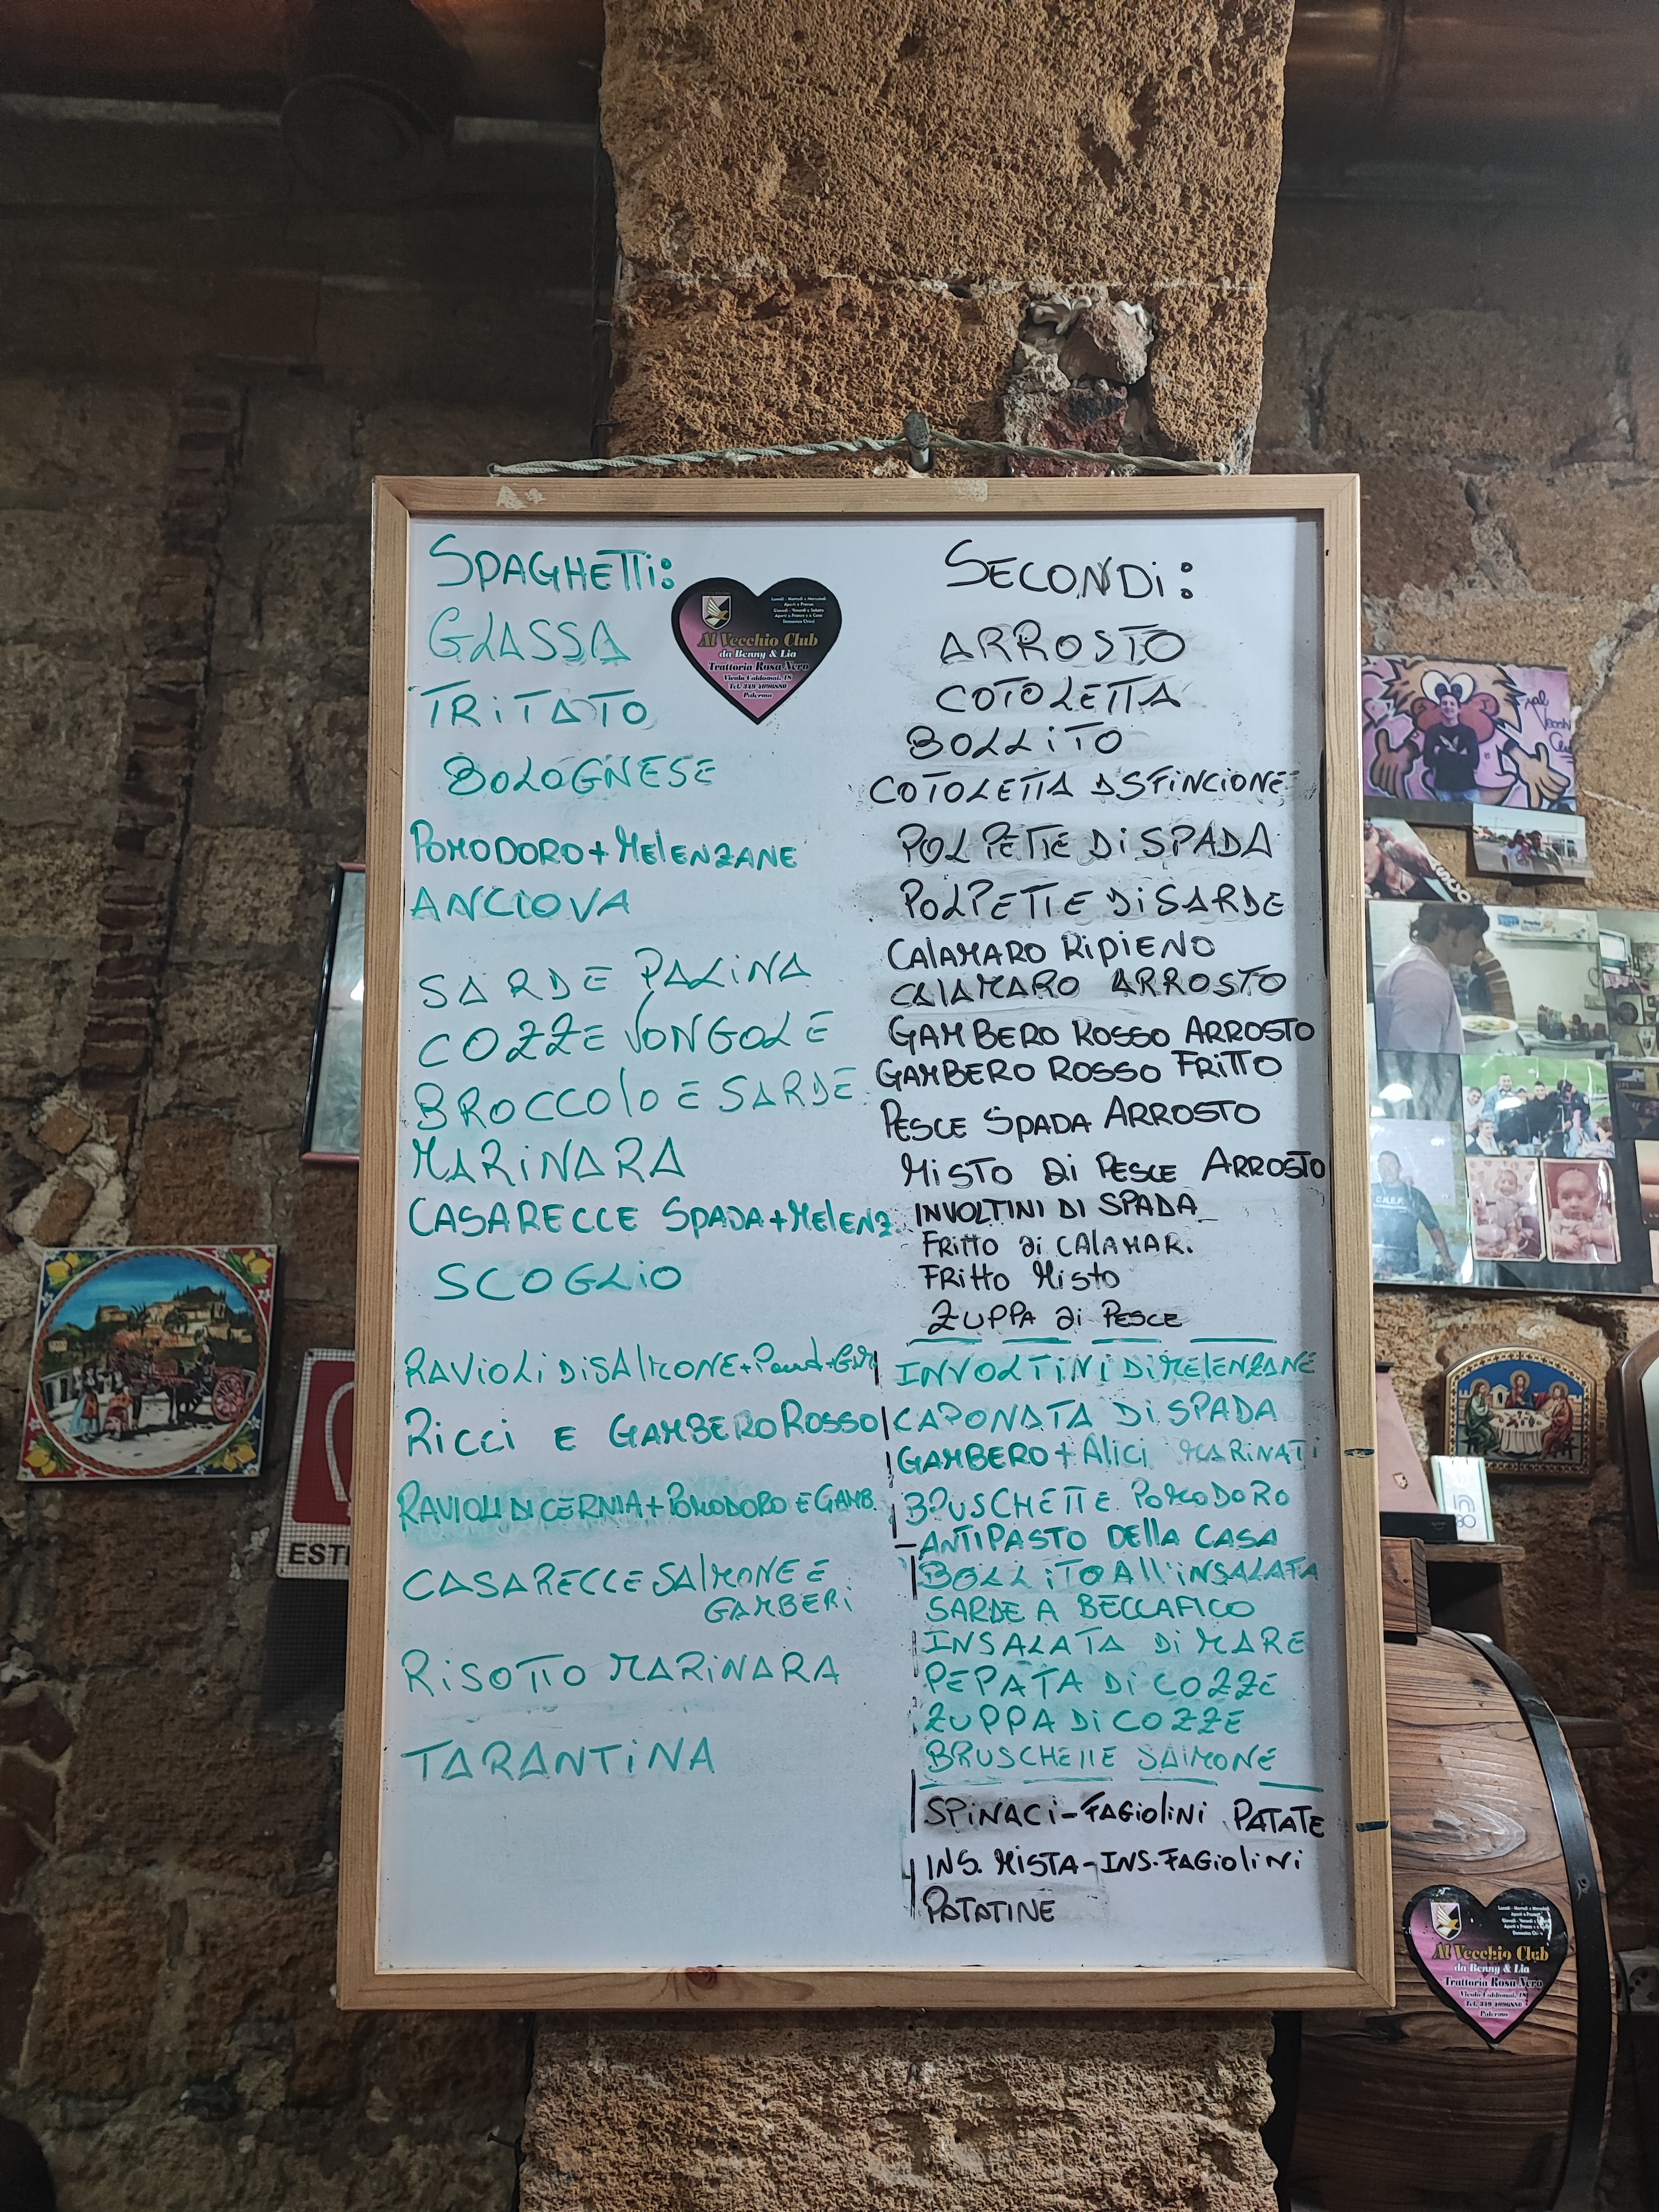 SPAGHETTI:
GLASSA
TRITATO
BOLOGNESE
POMODORO+MELENZANE
ANCIOVA
SARDE PALINA
COZZE VONGOLE
BROCCOLO E SARDE
MARINARA
CASARECCE SPADA+MELENZ.
SCOGLIO
RAVIOLI DI SALMONE+
RICCI E GAMBERO ROSSO
RAVIOLI DI CERNIA+POMODORO E GAMB.
CASARECCE SALMONE E
GAMBERI
RISOTTO MARINARA
TARANTINA
Al Vecchio Club
da Benny & Lia
Trattoria Rosa Nero
Palermo
SECONDI:
ARROSTO
COTOLETTA
BOLLITO
COTOLETTA A SFINCIONE
POLPETTE DI SPADA
POLPETTE DI SARDE
CALAMARO RIPIENO
CALAMARO ARROSTO
GAMBERO ROSSO ARROSTO
GAMBERO ROSSO FRITTO
PESCE SPADA ARROSTO
MISTO DI PESCE ARROSTO
INVOLTINI DI SPADA
FRITTO DI CALAMAR.
FRITTO MISTO
ZUPPA DI PESCE
INVOLTINI DI MELENZANE
CAPONATA DI SPADA
GAMBERO + ALICI MARINATI
BRUSCHETTE POMODORO
- ANTIPASTO DELLA CASA
BOLLITO ALL'INSALATA
SARDE A BECCAFICO
INSALATA DI MARE
PEPATA DI COZZE
ZUPPA DI COZZE
BRUSCHETTE SALMONE
SPINACI-FAGIOLINI PATATE
INS. MISTA-INS. FAGIOLINI
PATATINE
ESTI
Al Vecchio Club
da Benny & Lia
Trattoria Rosa Nero
Palermo